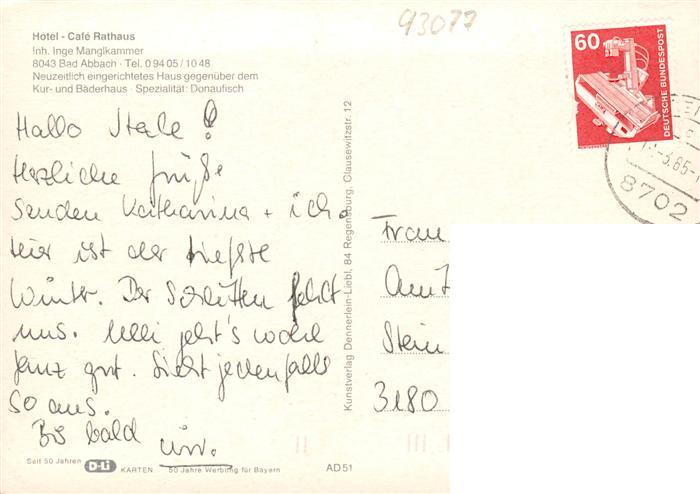 93077
Hotel - Café Rathaus
Inh. Inge Manglkammer
8043 Bad Abbach · Tel. 0 94 05 / 10 48
Neuzeitlich eingerichtetes Haus gegenüber dem
Kur- und Bäderhaus · Spezialität: Donaufisch
Hallo
Herzliche Grüße
senden Katharina + ich.
Hier ist der tiefste
Winter. Der Schlitten fehlt
uns. Ulli geht's wohl
ganz gut. Sieht jedenfalls
so aus.
Bis bald
Seit 50 Jahren D-Li KARTEN 50 Jahre Werbung für Bayern
AD 51
Kunstverlag Dennerlein-Liebl, 84 Regensburg, Clausewitzstr. 12
60
DEUTSCHE BUNDESPOST
-3.85-
8702
Frau
Stein
3180